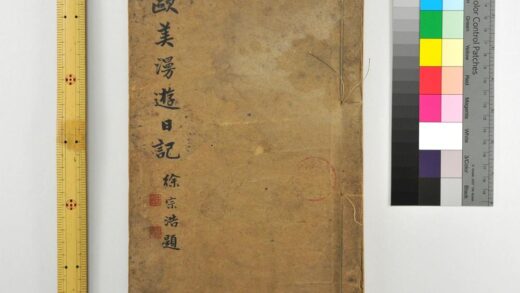 歐美漫遊日記
徐宗浩題
Color Control Patches
Green
Yellow
Red
Magenta
White
3/Color
Black